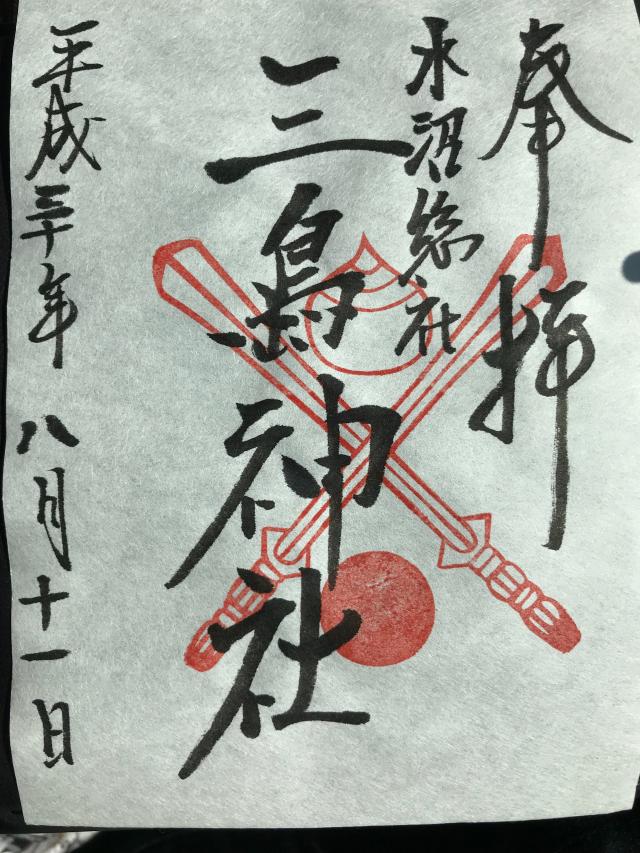 奉拝
水沼総社
三島神社
平成三十年八月十一日